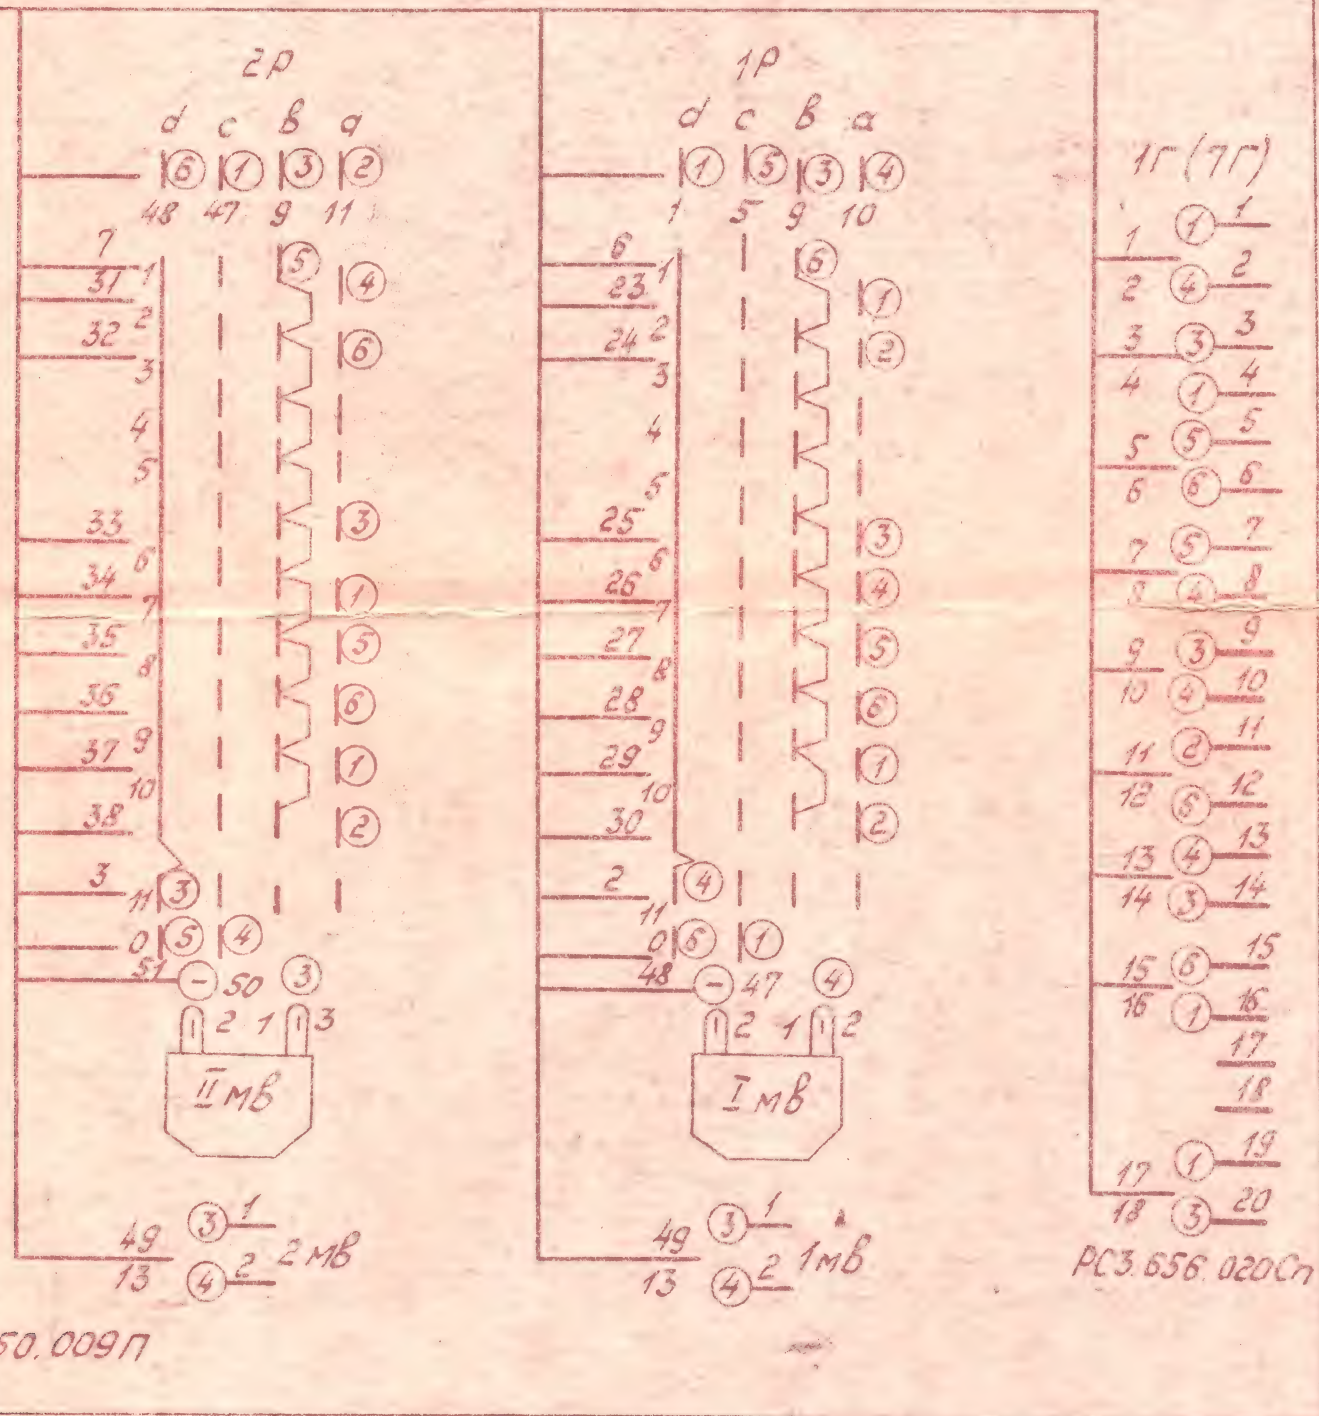 2Р
d c в а
6 1 3 2
48 47 9 11
5
7 1 4
31
2
32 6
3
4
5
33 3
6
34 1
7
35 5
8
36 6
9
37 1
10
38 2
3 11 3
0 5 4
51 − 50 3
2 1 3
II мв
3 1
49 2 мв
13 4 2
50.009П
1Р
d c в а
1 5 3 4
1 5 9 10
6
6 1
23 1
2
24 2
3
4
5
25 3
6
26 4
7
27 5
8
28 6
9
29 1
10
30 2
2 11 4
0 6 1
48 − 47 4
2 1 2
I мв
3 1
49 1мв
13 4 2
1Г (7Г)
1 1
1
2 4 2
3 3 3
4 1 4
5 5 5
6 6 6
7 5 7
8 4 8
9 3 9
10 4 10
11 2 11
12 12
13 4 13
14 3 14
15 6 15
16 1 16
17
18
17 1 19
18 3 20
РС3.656.020Сп